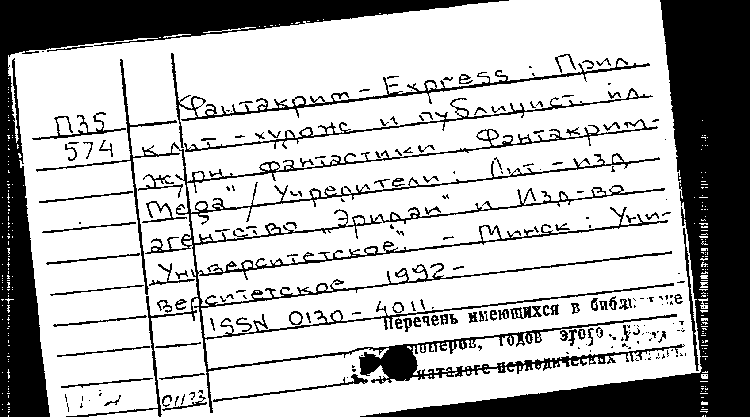 Фантакрим - Express : Прил.
П35
574
к лит. - худож и публицист. ил.
журн. фантастики „Фантакрим-
Мега" / Учредители: Лит - изд
агентство „Эридан" и Изд-во
„Университетское". - Минск : Уни-
верситетское, 1992 -
ISSN 0130 - 4011.
Перечень имеющихся в библиотеке
номеров, годов этого
каталоге периодических
01123